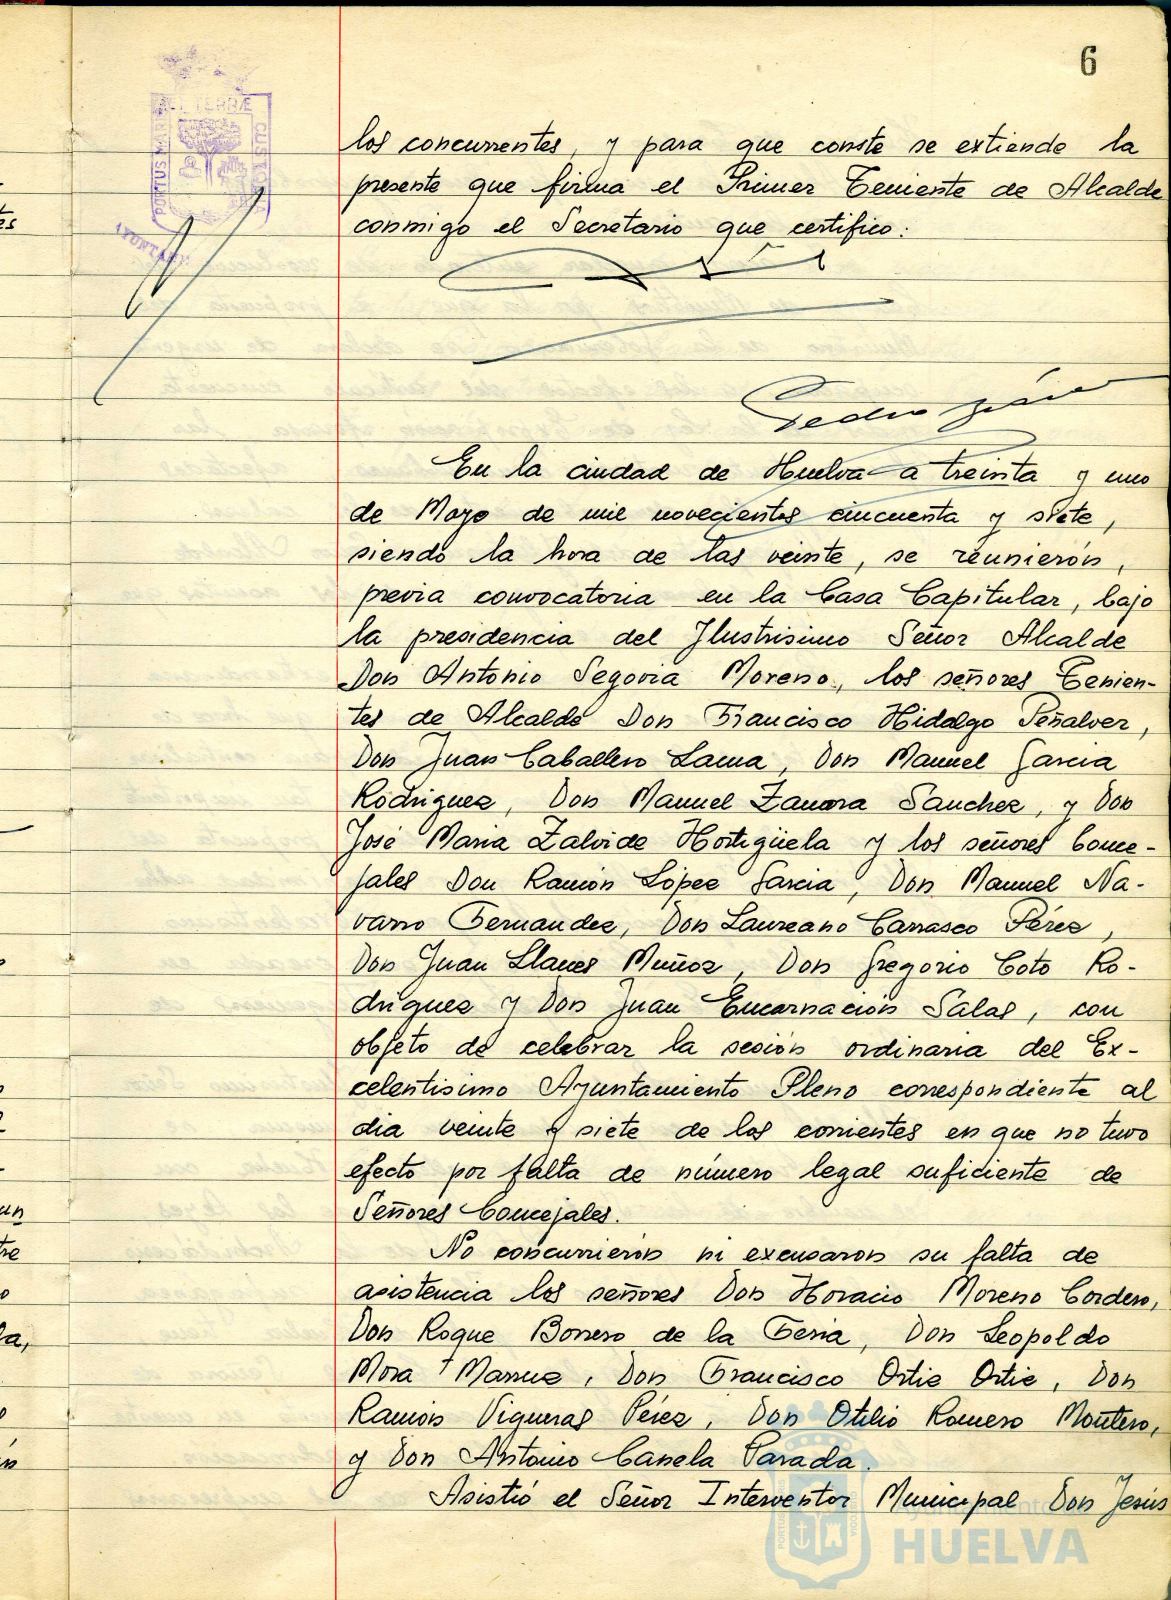 6
PORTUS MARIS ET TERRÆ CUSTODIA
AYUNTAM
los concurrentes, y para que conste se extiende la
presente que firma el Primer Teniente de Alcalde
conmigo el Secretario que certifico:
En la ciudad de Huelva a treinta y uno
de Mayo de mil novecientos cincuenta y siete,
siendo la hora de las veinte, se reunieron,
previa convocatoria en la Casa Capitular, bajo
la presidencia del Ilustrisimo Señor Alcalde
Don Antonio Segovia Moreno, los señores Tenien-
tes de Alcalde Don Francisco Hidalgo Peñalver,
Don Juan Caballero Lama, Don Manuel Garcia
Rodriguez, Don Manuel Zamora Sanchez, y Don
José Maria Zalvide Hortigüela y los señores Conce-
jales Don Ramón López Garcia, Don Manuel Na-
varro Fernandez, Don Laureano Carrasco Pérez,
Don Juan Llanes Muñoz, Don Gregorio Coto Ro-
driguez y Don Juan Encarnación Salas, con
objeto de celebrar la sesión ordinaria del Ex-
celentisimo Ayuntamiento Pleno correspondiente al
dia veinte y siete de los corrientes en que no tuvo
efecto por falta de número legal suficiente de
Señores Concejales.
No concurrieron ni excusaron su falta de
asistencia los señores Don Horacio Moreno Cordero,
Don Roque Borrero de la Feria, Don Leopoldo
Mora Marruz, Don Francisco Ortiz Ortiz, Don
Ramón Vigueras Pérez, Don Otilio Romero Montero,
y Don Antonio Canela Parada.
Asistió el Señor Interventor Municipal Don Jesús
HUELVA